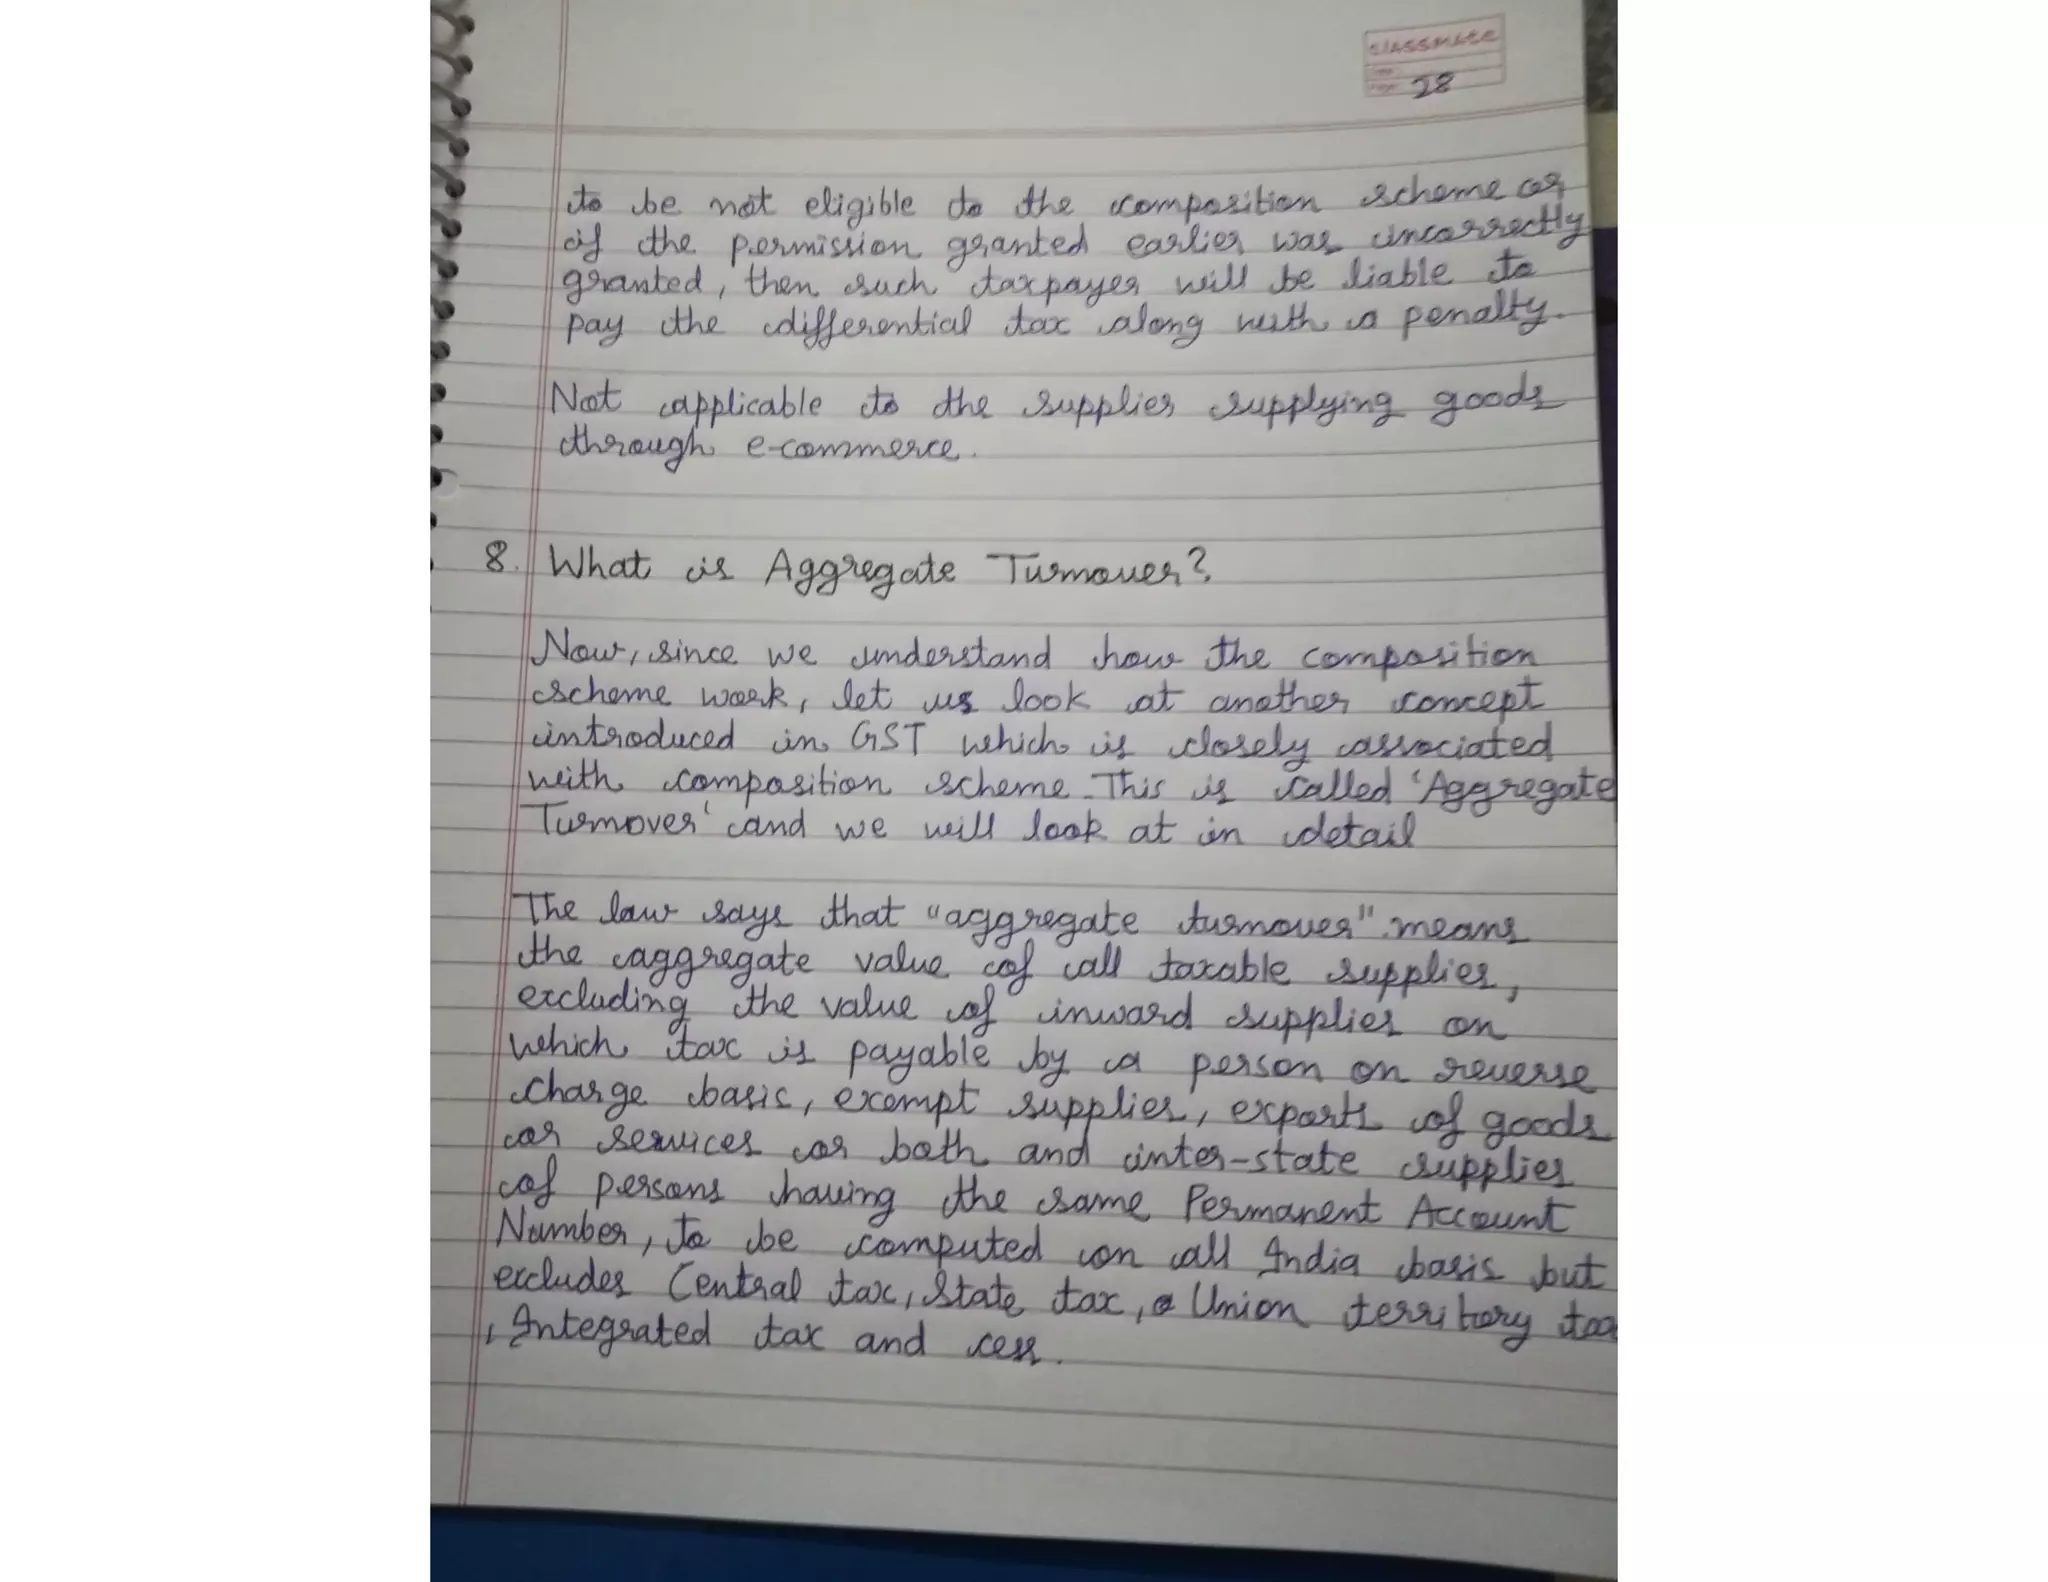 classmate
28
to be not eligible to the composition scheme or
if the permission granted earlier was incorrectly
granted, then such taxpayer will be liable to
pay the differential tax along with a penalty.
Not applicable to the supplier supplying goods
through e-commerce.
8. What is Aggregate Turnover?
Now, since we understand how the composition
scheme work, let us look at another concept
introduced in GST which is closely associated
with composition scheme. This is called 'Aggregate
Turnover' and we will look at in detail
The law says that "aggregate turnover" means
the aggregate value of all taxable supplies,
excluding the value of inward supplies on
which tax is payable by a person on reverse
charge basis, exempt supplies, exports of goods
or services or both and inter-state supplies
of persons having the same Permanent Account
Number, to be computed on all India basis but
excludes Central tax, State tax, Union territory tax
, Integrated tax and cess.